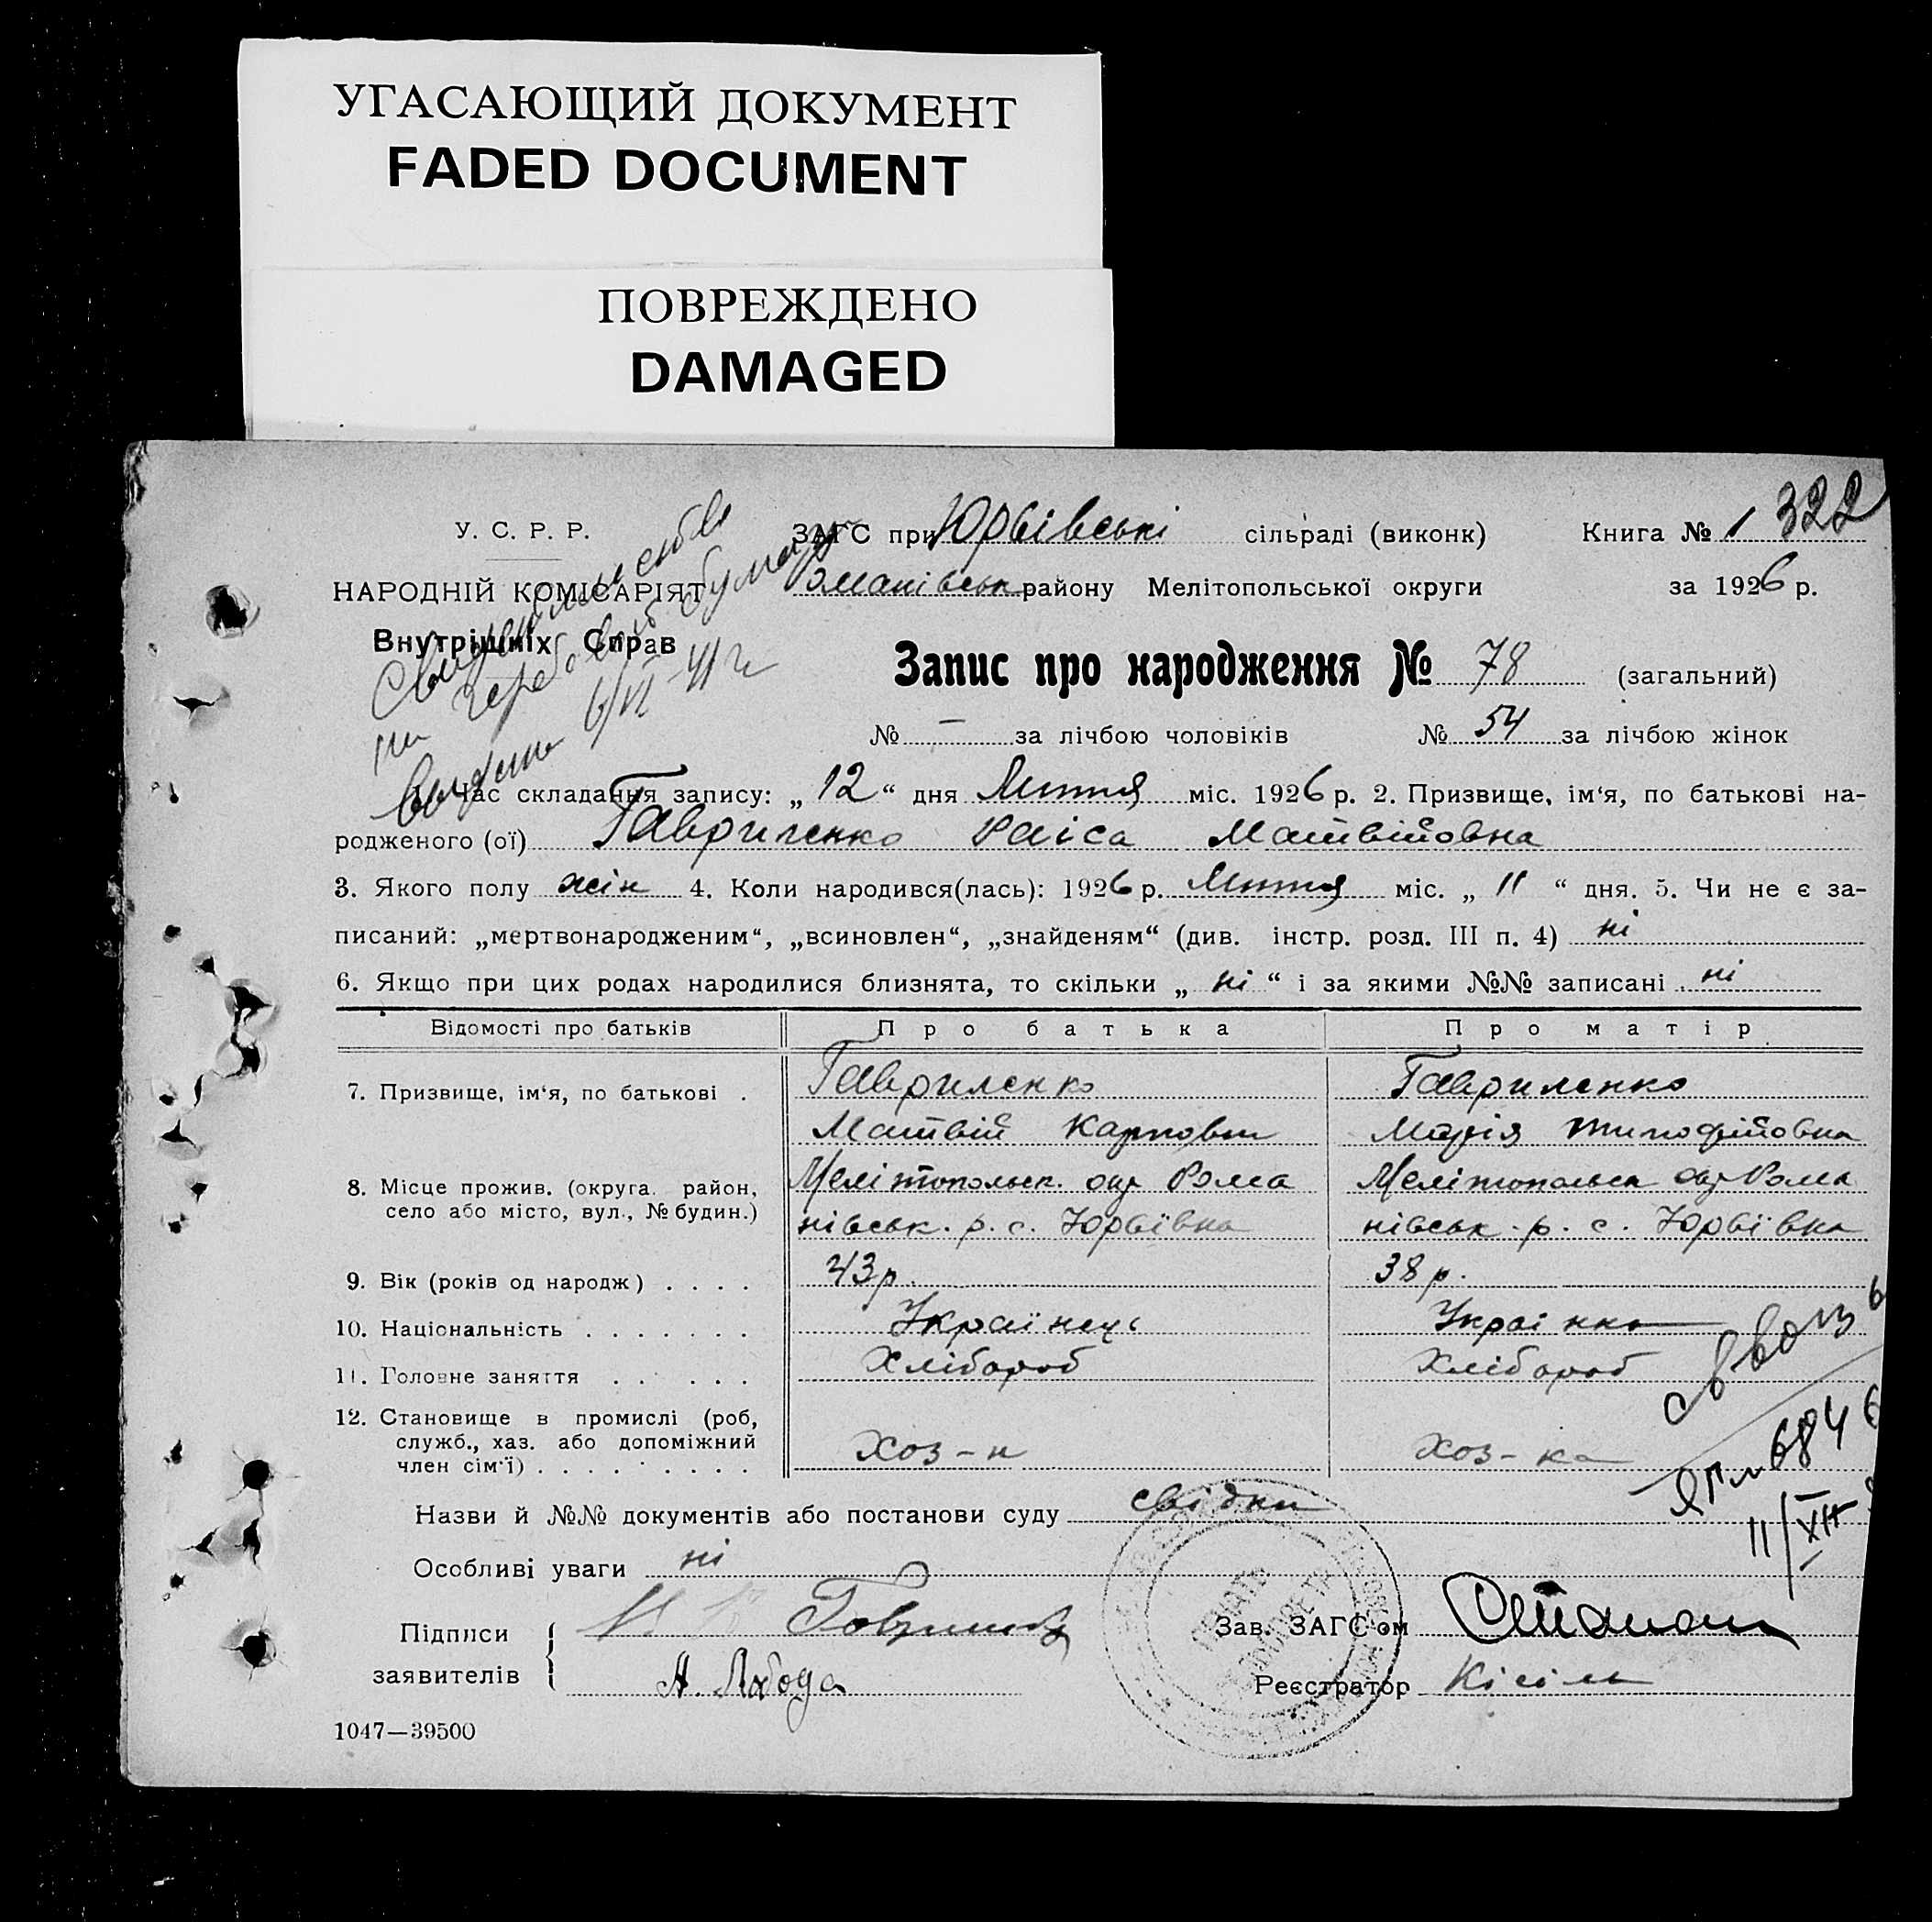 УГАСАЮЩИЙ ДОКУМЕНТ
FADED DOCUMENT
ПОВРЕЖДЕНО
DAMAGED
322
У. С. Р. Р.
НАРОДНІЙ КОМІСАРІЯТ
Внутрішніх Справ
ЗАГС при Юрвівські сільраді (виконк) Книга № 1
Романівськ району Мелітопольської округи за 1926 р.
Запис про народження № 78 (загальний)
№ — за лічбою чоловіків № 54 за лічбою жінок
на
6/VI-41 г
Час складання запису: „ 12 “ дня Липня міс. 1926 р. 2. Призвище, ім‘я, по батькові на-
родженого (ої) Гавриленко Раіса Матвійовна
3. Якого полу жін 4. Коли народився(лась): 1926 р. Липня міс. „ 11 “ дня. 5. Чи не є за-
писаний: „мертвонародженим“, „всиновлен“, „знайденям“ (див. інстр. розд. III п. 4) ні
6. Якщо при цих родах народилися близнята, то скільки „ ні “ і за якими №№ записані ні
Відомості про батьків Про батька Про матір
7. Призвище, ім‘я, по батькові . Гавриленко Гавриленко
Матвій Карпович Марія Тимофійовна
8. Місце прожив. (округа, район, Мелітопольск. окр Рома Мелітопольск окр Рома
село або місто, вул., № будин.) нівськ. р. с. Юрвївка нівськ. р. с. Юрвївка
9. Вік (років од народж) . . . . 43 р. 38 р.
10. Національність . . . . . . . Українець Украінка
11. Головне заняття . . . . . . Хлібороб Хлібороб
12. Становище в промислі (роб,
служб., хаз. або допоміжний Хоз-н Хоз-ка
член сім‘ї) . . . . . . . . .
11/XII
Назви й №№ документів або постанови суду свідки
Особливі уваги ні
Підписи
заявителів
А. Лябода
Зав. ЗАГС‘ом
Реєстратор Кісіль
1047—39500